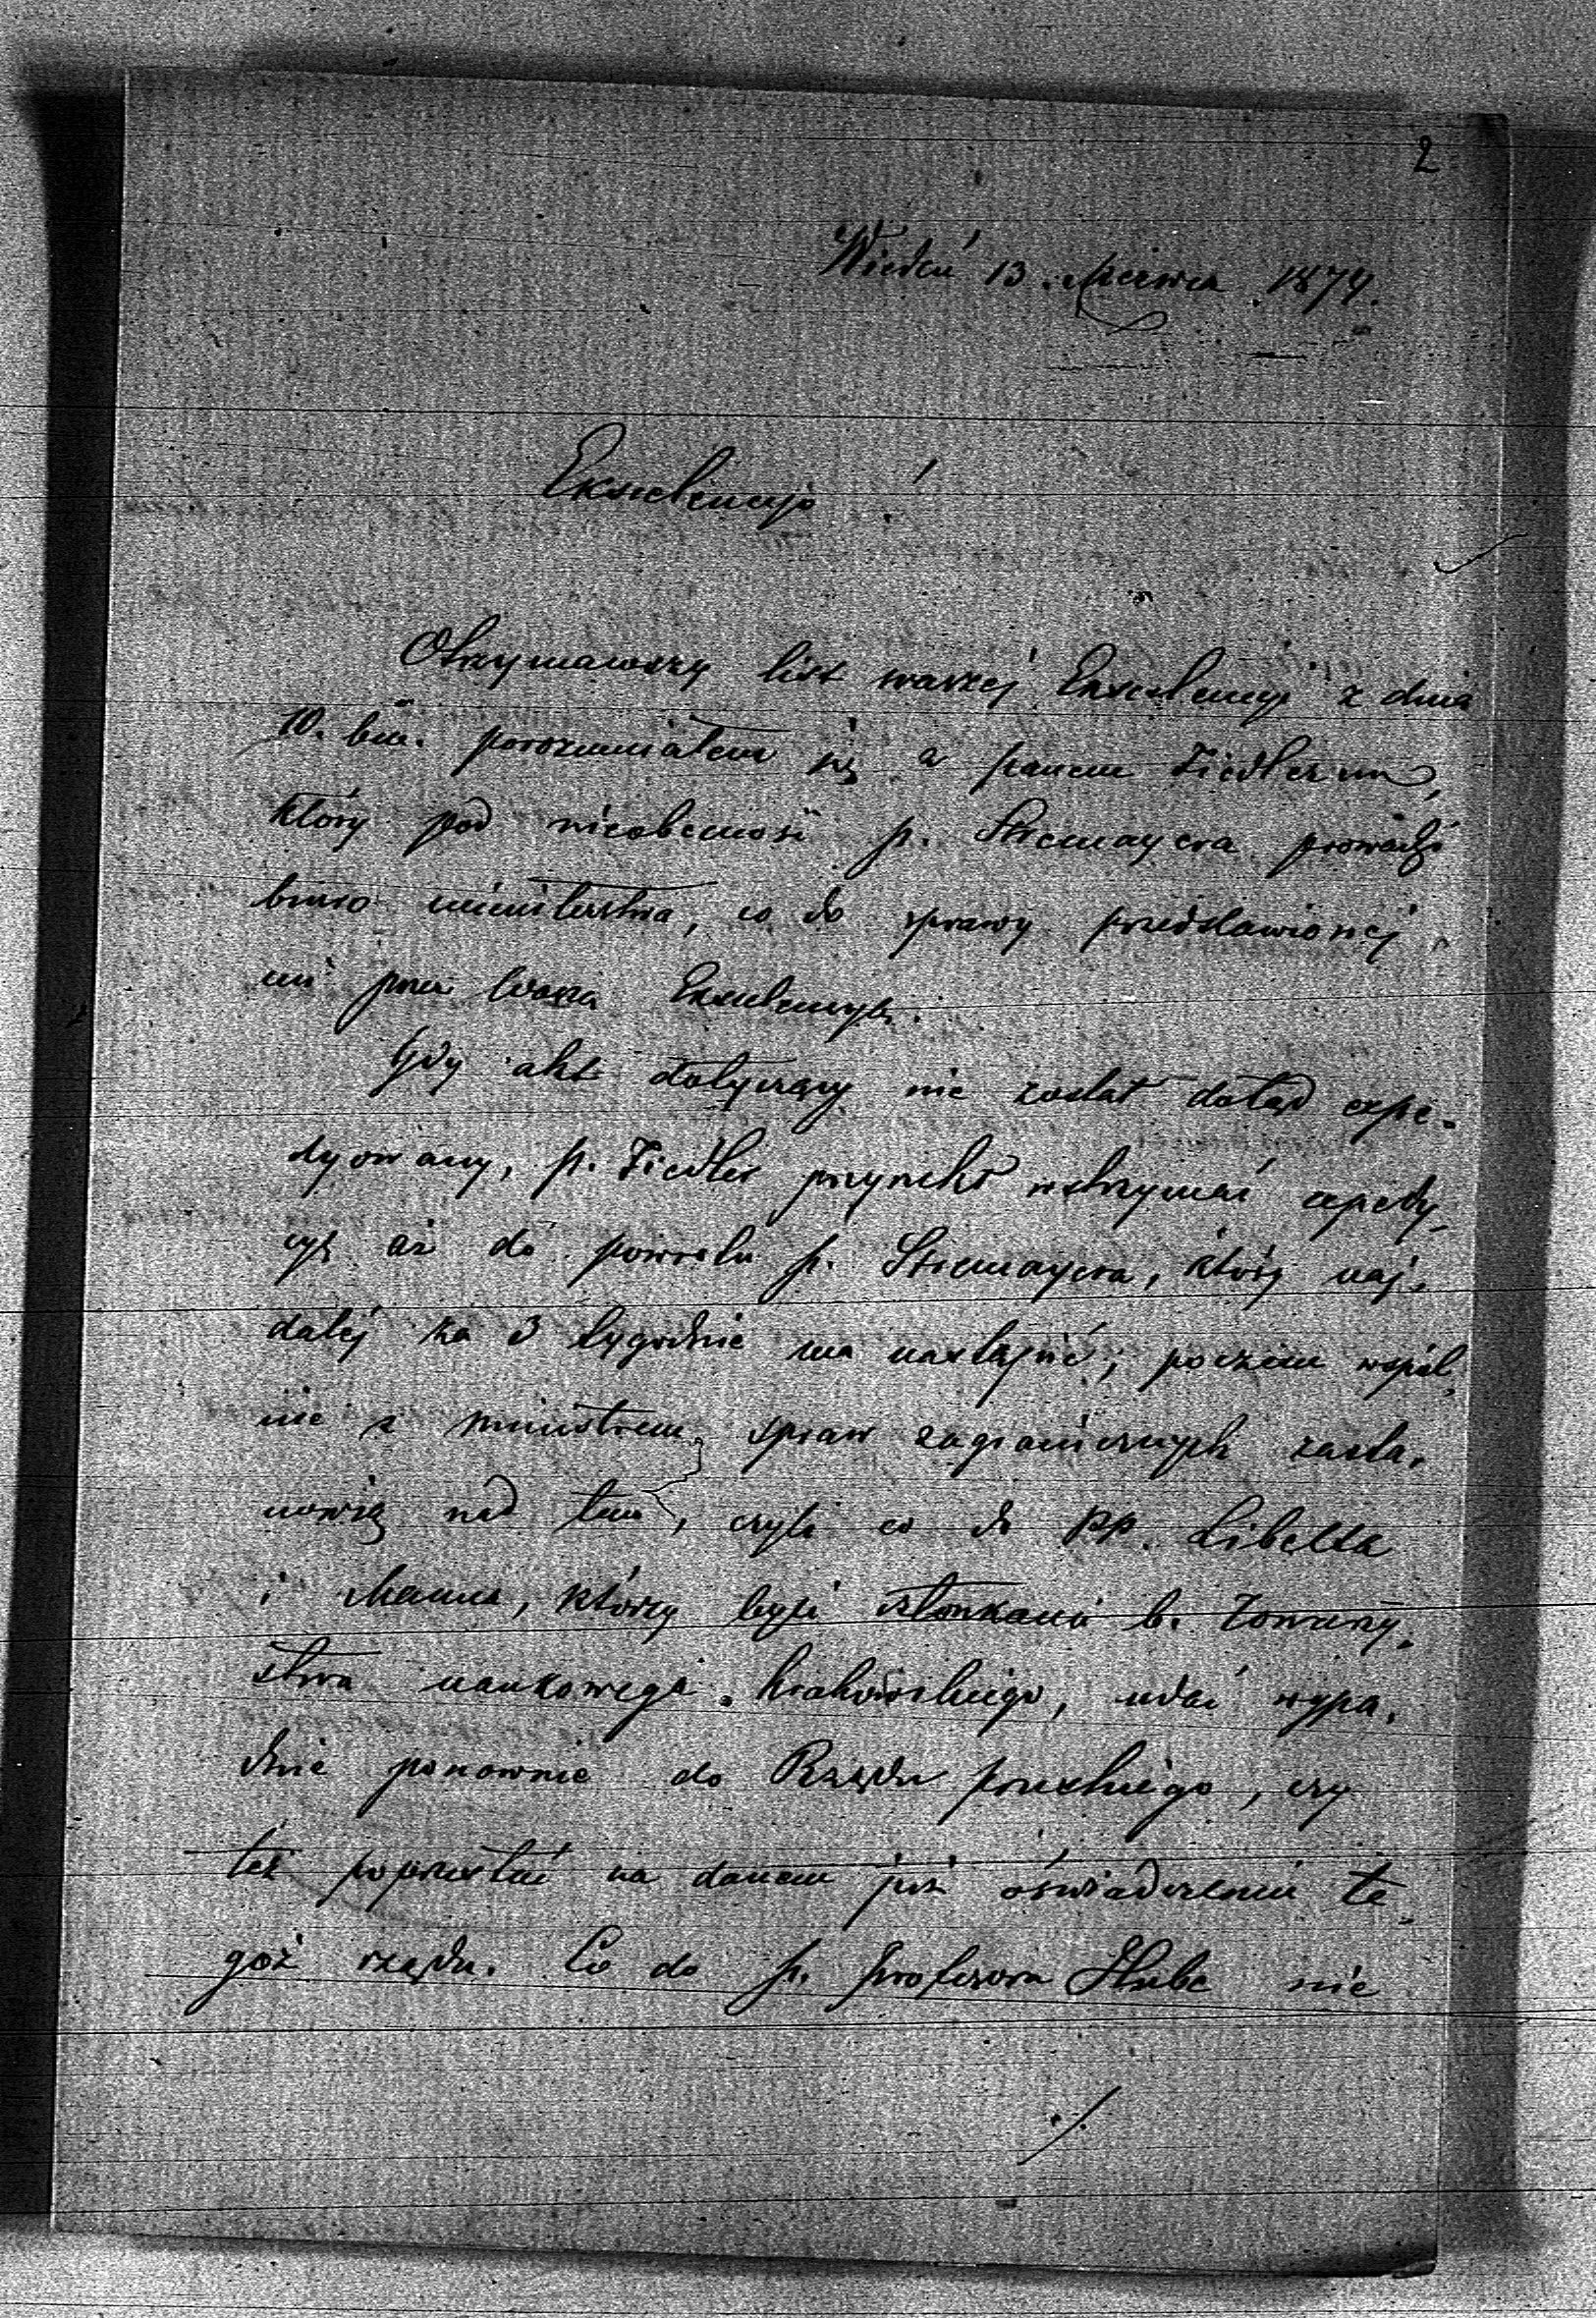 2
Wiedeń 13. Czerwca 1874.
Ekscelencyjo!
Otrzymawszy list waszej Ekscelencyi z dnia
10. bm. porozumiałem się z panem Fiedlerem,
który pod nieobecność p. Stremayera prowadzi
biuro ministerstwa, co do sprawy przedstawionej
mi przez Waszą Ekscelencyę.
Gdy akt dotyczący nie został dotąd expe-
dyowany, p. Fiedler przyrzekł wstrzymać expedy-
cyę aż do powrotu p. Stremayera, który naj-
dalej za 3 tygodnie ma nastąpić; poczem wspól-
nie z ministrem spraw zagranicznych zasta-
nowią nad tem, czyli co do pp. Libelta
i Manna, którzy byli członkami b. Towarzy-
stwa naukowego Krakowskiego, udać wypa-
dnie ponownie do Rządu pruskiego, czy
też poprzestać na danem już oświadczeniu te-
goż rządu. Co do p. Profesora Hube nie
./.